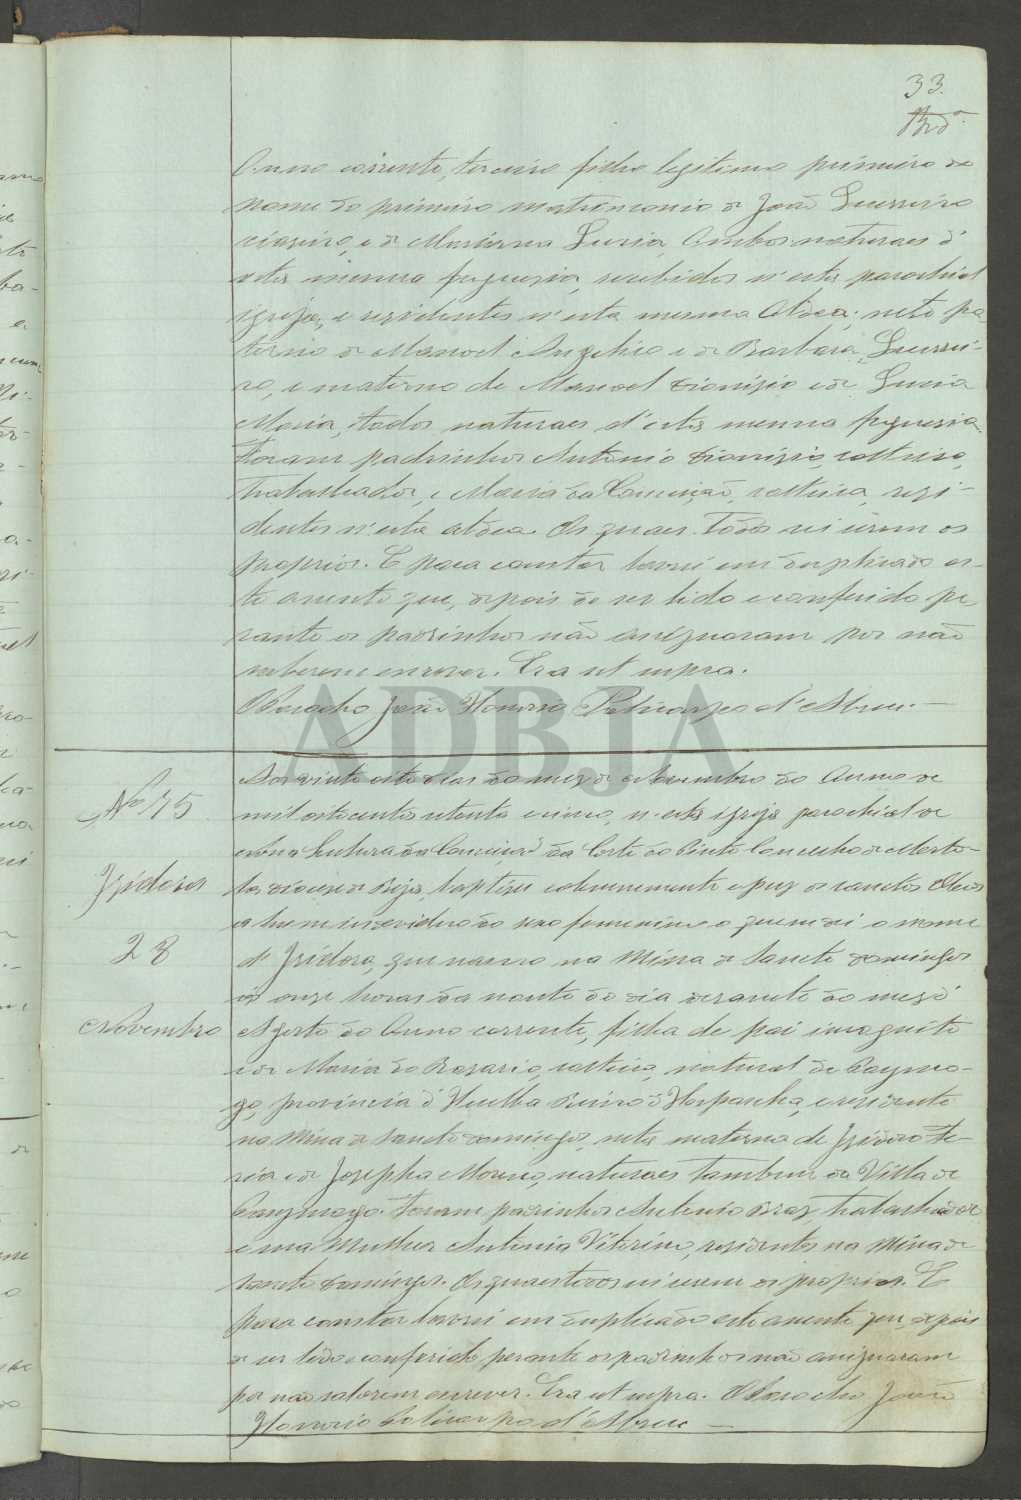 33.
Anno corrente, terceiro filho legitimo primeiro do
nome do primeiro matrimonio de João Guerreiro
ceareiro, e de Marianna Luzia, ambos naturaes d'
esta mesma freguezia, recebidos n'esta parochial
igreja, e rezidentes n'esta mesma Aldea; neto pa-
terno de Manoel Angelino e de Barbara Guerrei-
ro, e materno de Manoel Dionizio e de Luzia
Maria, todos naturaes d'esta mesma freguezia.
Foram padrinhos Antonio Dionizio, solteiro,
trabalhador, e Maria da Conceição, solteira, rezi-
dentes n'esta aldea. Os quaes todos sei serem os
proprios. E para constar lavrei em duplicado es-
te assento que, depois de ser lido e conferido pe-
rante os padrinhos não assignaram por não
saberem escrever. Era ut supra.
O Parocho João Honorio Policarpo d'Abreu.
ADBJA
Nº 75
Izidora
28
Novembro
Aos vinte oito dias do mez de Novembro do Anno de
mil oitocentos setenta e cinco, n'esta igreja parochial de
Nossa Senhora da Conceição da Corte do Pinto Concelho de Merto-
la, diocese de Beja, baptizei solemnemente e puz os sanctos Oleos
a hum individuo do sexo femenino a quem dei o nome
d'Izidora, que nasceo na Mina de Sancto Domingos
ás onze horas da noute do dia dezasete do mez d'
Agosto do Anno corrente, filha de pai incognito
e de Maria do Rozario, solteira, natural de Paymo-
go, provincia d'Huelba Reino d'Hespanha, e rezidente
na Mina de Sancto Domingos, neta materna de Izidoro Fe-
ria e de Josepha Moreno, naturaes tambem da Villa de
Paymogo. Foram padrinhos Antonio Braz, trabalhador
e sua mulher Antonia Viterino, rezidentes na Mina de
Sancto Domingos. Os quaes todos sei serem os proprios. E
para constar lavrei em duplicado este assento que, depois
de ser lido e conferido perante os padrinhos não assignaram
por não saberem escrever. Era ut supra. O Parocho João
Honorio Policarpo d'Abreu